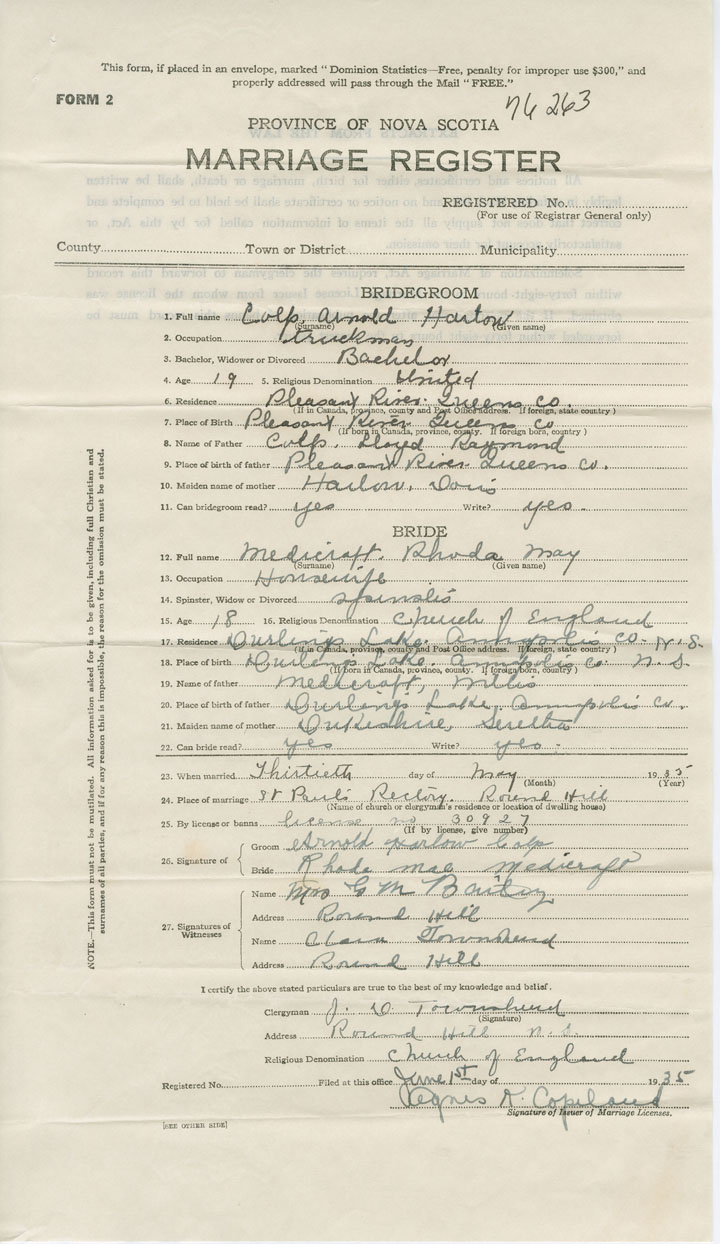 This form, if placed in an envelope, marked "Dominion Statistics—Free, penalty for improper use $300," and
properly addressed will pass through the Mail "FREE."
FORM 2
263
PROVINCE OF NOVA SCOTIA
MARRIAGE REGISTER
REGISTERED No.
(For use of Registrar General only)
County Town or District Municipality
BRIDEGROOM
1. Full name Colp, Arnold Harlow
(Surname) (Given name)
2. Occupation truckman
3. Bachelor, Widower or Divorced Bachelor
4. Age 19 5. Religious Denomination United
6. Residence Pleasant River. Queens Co.
(If in Canada, province, county and Post Office address. If foreign, state country)
7. Place of Birth Pleasant River. Queens Co
(If born in Canada, province, county. If foreign born, country)
8. Name of Father Colp. Lloyd Raymond
9. Place of birth of father Pleasant River. Queens Co.
10. Maiden name of mother Harlow, Doris
11. Can bridegroom read? yes Write? yes.
BRIDE
12. Full name Medicraft. Rhoda May
(Surname) (Given name)
13. Occupation Housewife
14. Spinster, Widow or Divorced
15. Age 18 16. Religious Denomination Church of England
17. Residence Durlings Lake. Annapolis Co. N.S.
(If in Canada, province, county and Post Office address. If foreign, state country)
18. Place of birth Durlings Lake. Annapolis Co. N.S.
(If born in Canada, province, county. If foreign born, country)
19. Name of father Medicraft, Willis
20. Place of birth of father Durling's Lake. Annapolis Co.
21. Maiden name of mother
22. Can bride read? yes Write? yes.
23. When married Thirtieth day of May 1935
(Month) (Year)
24. Place of marriage St Paul's Rectory. Round Hill
(Name of church or clergyman's residence or location of dwelling house)
25. By license or banns license no 30927
(If by license, give number)
26. Signature of
Groom Arnold Harlow Colp
Bride Rhoda mae Medicraft
27. Signatures of Witnesses
Name Mrs G M
Address Round Hill
Name Clara Townshend
Address Round Hill
I certify the above stated particulars are true to the best of my knowledge and belief.
Clergyman J. D. Townshend
(Signature)
Address Round Hill N.S.
Religious Denomination Church of England
Registered No. Filed at this office June 1st day of 1935
Agnes K. Copeland
Signature of Issuer of Marriage Licenses.
[SEE OTHER SIDE]
NOTE.—This form must not be mutilated. All information asked for is to be given, including full Christian and
surnames of all parties, and if for any reason this is impossible, the reason for the omission must be stated.